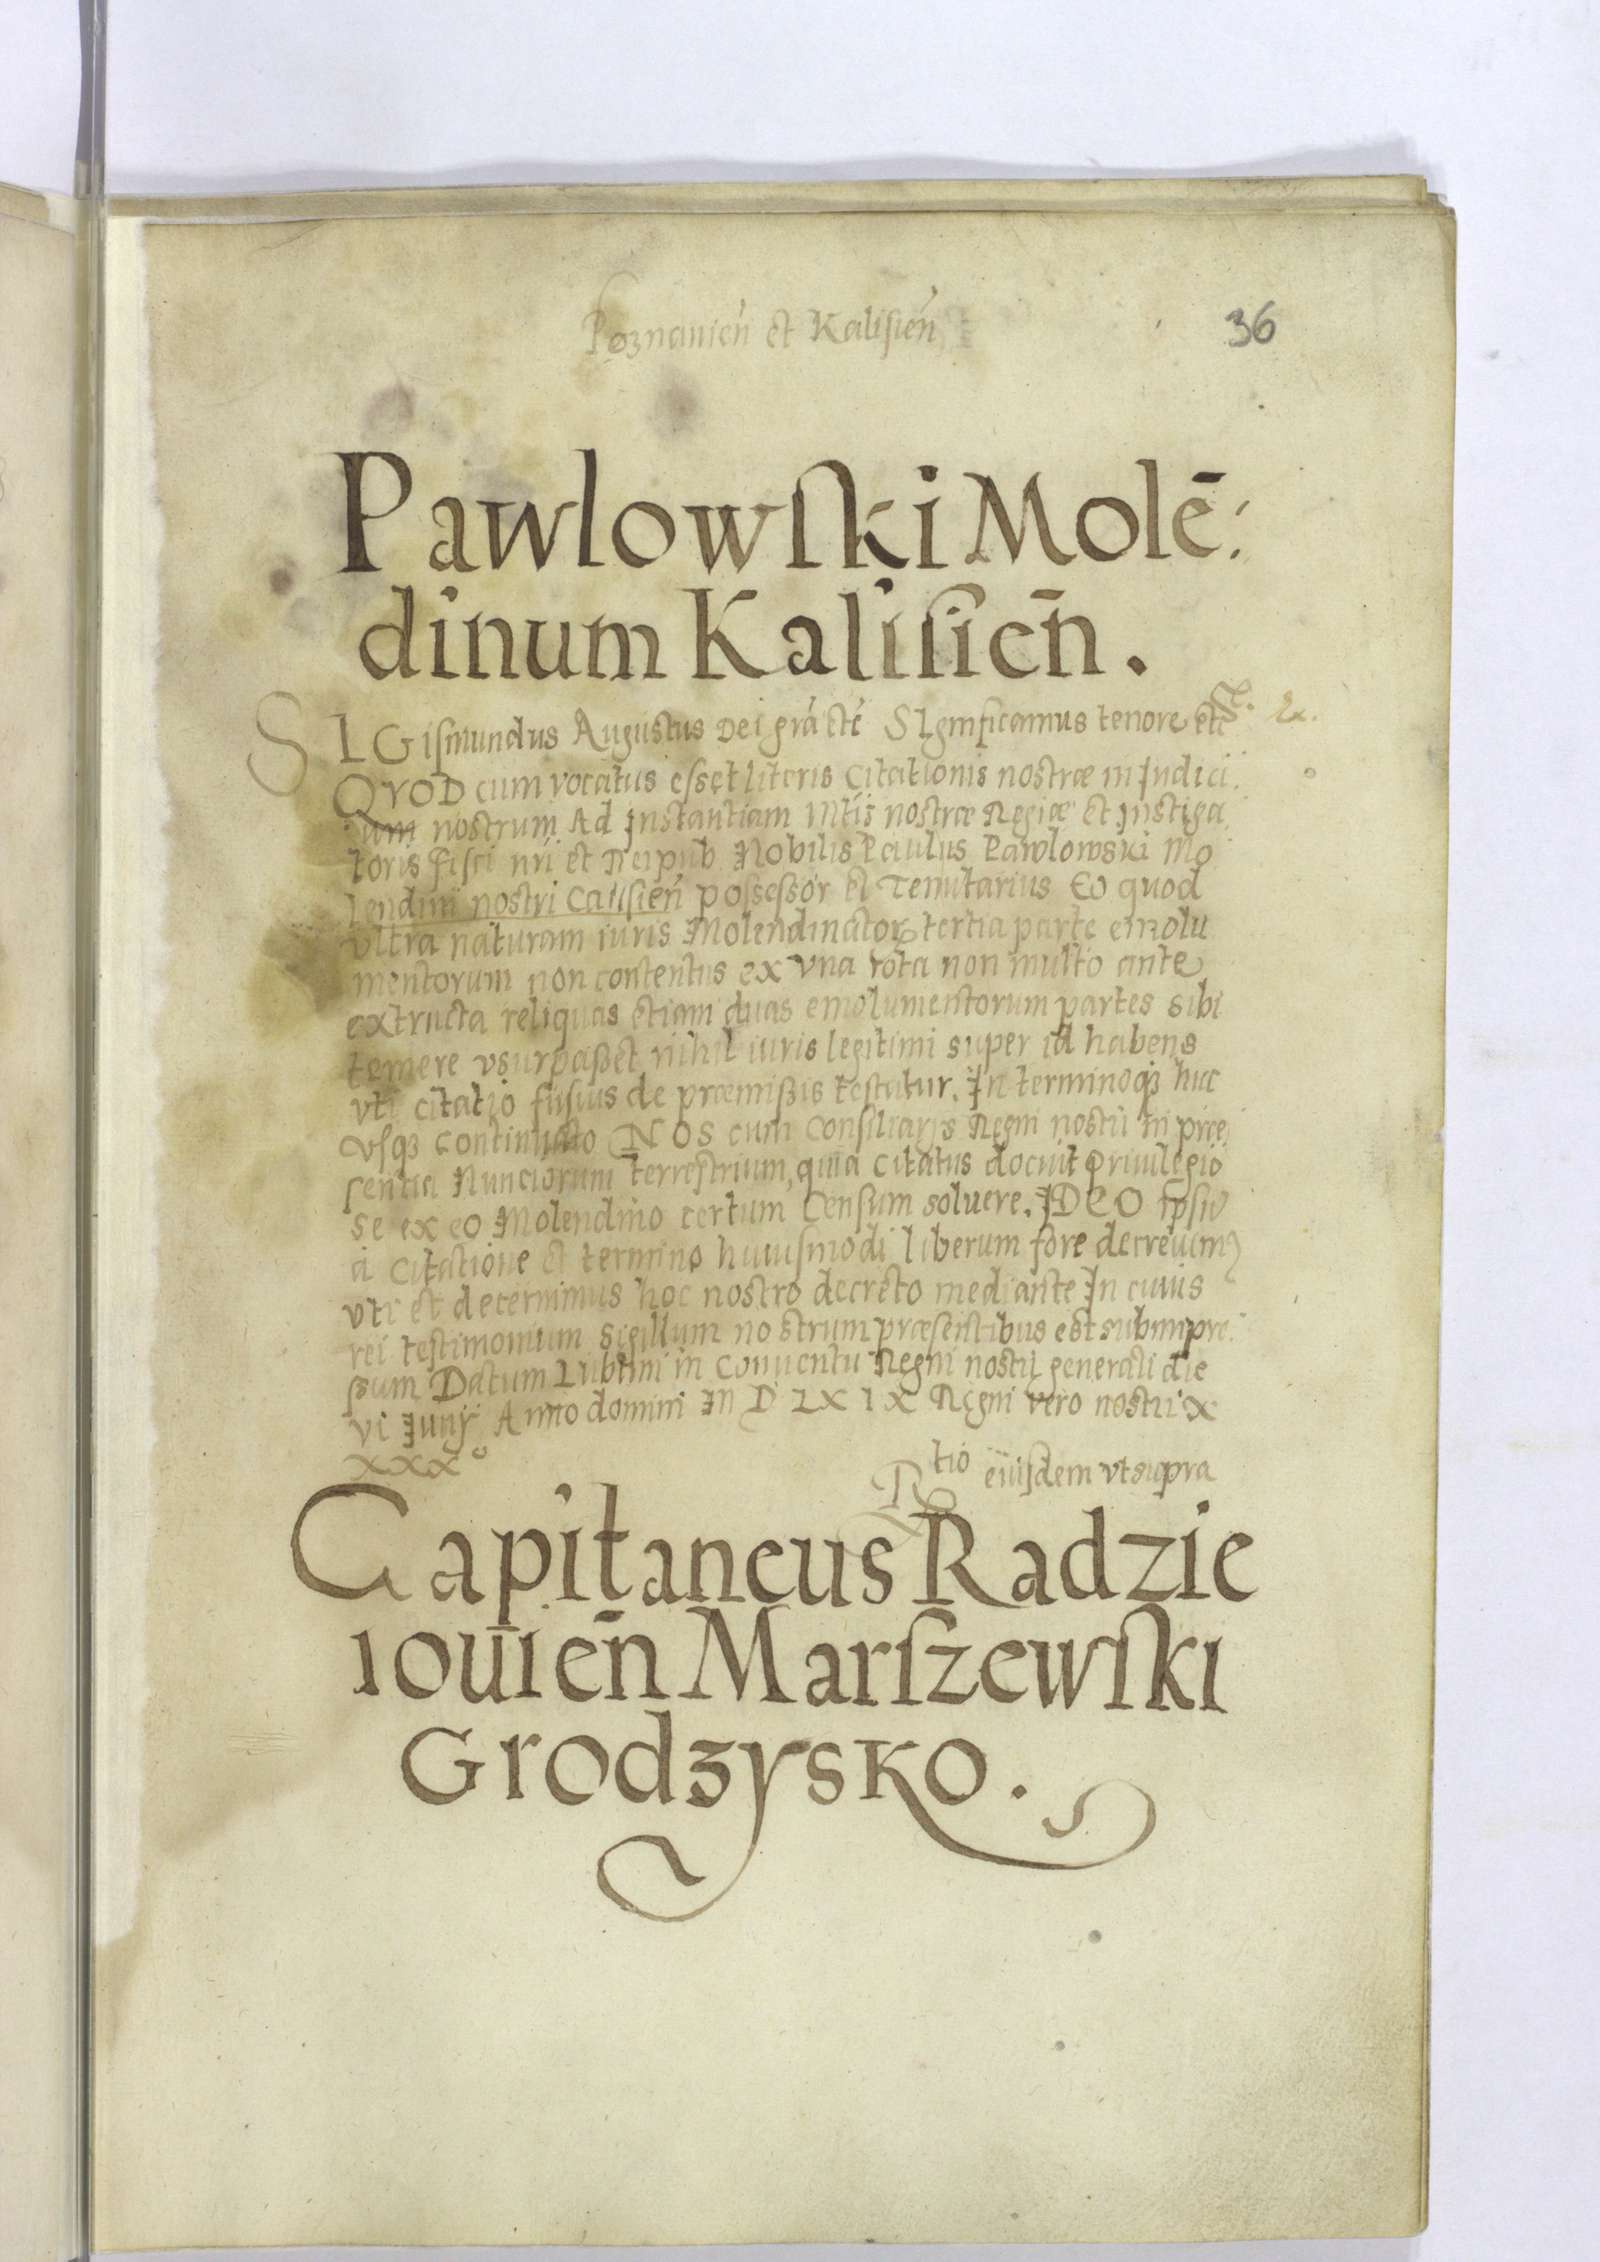 Poznanień et Kalisień
36
Pawlowſki Molē:
dinum Kaliſien̄.
SIGiſmundus Augustus Dei grá cté SIgnificamus tenore etc
QVOD cum vocatus eſset literis Citationis nostræ in Iudici
um nostrum Ad Instantiam Mtis nostræ Regiæ et Instiga
toris fiſci nri et Reipub Nobilis Paulus Pawlowski Mo
lendini nostri Calisień possessor et Tenutarius Eo quod
vltra naturam iuris Molendinator tertia parte emolu
mentorum non contentus ex vna rota non multo ante
extructa reliquas etiam duas emolumentorum partes sibi
temere vsurpaßet nihil iuris legitimi super id habens
vti citatio fusius de præmißis testatur. In terminoqꝫ huc
vſqꝫ continuato NOS cum Consiliarijs Regni nostri in præ
sentia Nunciorum terreſtrium, quia Citatus docuit Priuilegio
se ex eo Molendino certum Censum soluere. IDEO ipsũ
a Citatione et termino huiuſmodi liberum fore decreuimꝰ
vti et decernimus hoc nostro decreto mediante In cuius
rei teſtimonium Sigillum nostrum præsentibus est subimpre
ssum Datum Lublini in Conuentu Regni nostri generali die
vi Iunÿ Anno domini M D LX I X Regni vero nostri x
xxx°
Rtio eiuſdem vt supra
Capitaneus Radzie
iouień Marſzewſki
Grodzysko.